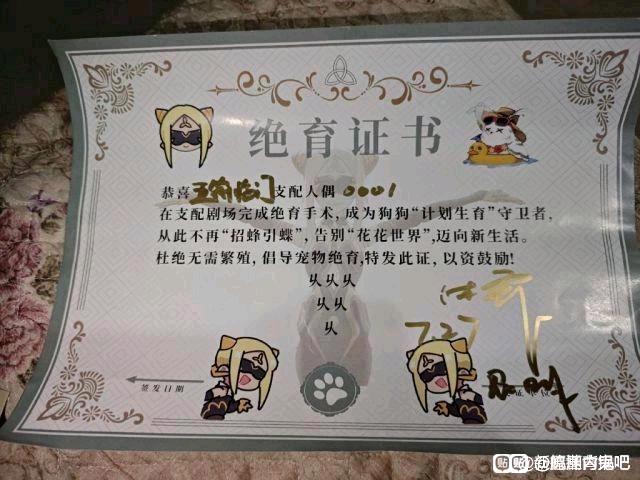 绝育证书
恭喜 支配人偶 0001
在支配剧场完成绝育手术，成为狗狗“计划生育”守卫者，
从此不再“招蜂引蝶”，告别“花花世界”，迈向新生活。
杜绝无需繁殖，倡导宠物绝育，特发此证，以资鼓励！
乆乆乆
乆乆
乆
7.27
签发日期